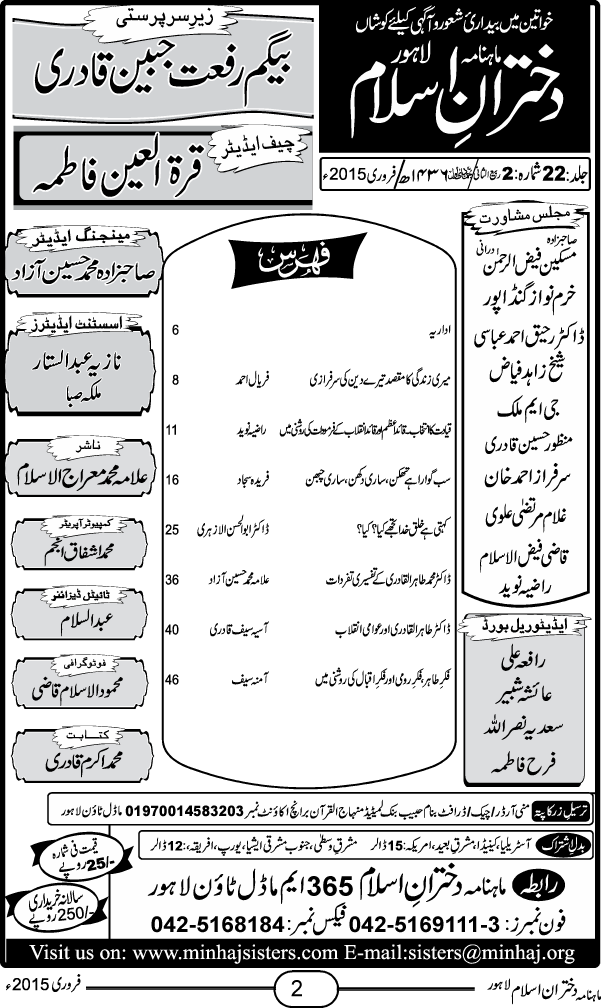 خواتین میں بیداریٔ شعور و آگہی کیلئے کوشاں
ماہنامہ دخترانِ اسلام لاہور
جلد: 22 شمارہ: 2 ۱۴۳۶ھ / فروری 2015ء
زیرِ سرپرستی
بیگم رفعت جبین قادری
چیف ایڈیٹر
قرۃ العین فاطمہ
مجلس مشاورت
صاحبزادہ مسکین فیض الرحمن درانی
خرم نواز گنڈاپور
ڈاکٹر رحیق احمد عباسی
شیخ زاہد فیاض
جی ایم ملک
منظور حسین قادری
سرفراز احمد خان
غلام مرتضیٰ علوی
قاضی فیض الاسلام
راضیہ نوید
ایڈیٹوریل بورڈ
رافعہ علی
عائشہ شبیر
سعدیہ نصراللہ
فرح فاطمہ
فہرس
اداریہ 6
میری زندگی کا مقصد تیرے دین کی سرفرازی فریال احمد 8
قیادت کا انتخاب۔ قائداعظم اور قائد انقلاب کے فرمودات کی روشنی میں راضیہ نوید 11
سب گوارا ہے تھکن، ساری دکھن، ساری چبھن فریدہ سجاد 16
کہتی ہے خلق خدا تجھے کیا؟ کیا؟ ڈاکٹر ابوالحسن الازہری 25
ڈاکٹر محمد طاہرالقادری کے تفسیری تفردات علامہ محمد حسین آزاد 36
ڈاکٹر طاہرالقادری اور عوامی انقلاب آسیہ سیف قادری 40
فکرِ طاہر، فکرِ رومی اور فکرِ اقبال کی روشنی میں آمنہ سیف 46
مینجنگ ایڈیٹر
صاحبزادہ محمد حسین آزاد
اسسٹنٹ ایڈیٹرز
نازیہ عبدالستار
ملکہ صبا
ناشر
علامہ محمد معراج الاسلام
کمپیوٹر آپریٹر
محمد اشفاق انجم
ٹائیٹل ڈیزائنر
عبدالسلام
فوٹوگرافی
محمود الاسلام قاضی
کتابت
محمد اکرم قادری
ترسیل زر کا پتہ منی آرڈر/چیک/ڈرافٹ بنام حبیب بنک لمیٹیڈ منہاج القرآن برانچ اکاؤنٹ نمبر 01970014583203 ماڈل ٹاؤن لاہور
بدل اشتراک آسٹریلیا، کینیڈا، مشرق بعید، امریکہ: 15 ڈالر مشرق وسطیٰ، جنوب مشرقی ایشیا، یورپ، افریقہ: 12 ڈالر
قیمت فی شمارہ
25/- روپے
سالانہ خریداری
250/- روپے
رابطہ ماہنامہ دخترانِ اسلام 365 ایم ماڈل ٹاؤن لاہور
فون نمبرز: 042-5169111-3 فیکس نمبر: 042-5168184
Visit us on: www.minhajsisters.com E-mail:sisters@minhaj.org
ماہنامہ دختران اسلام لاہور 2 فروری 2015ء